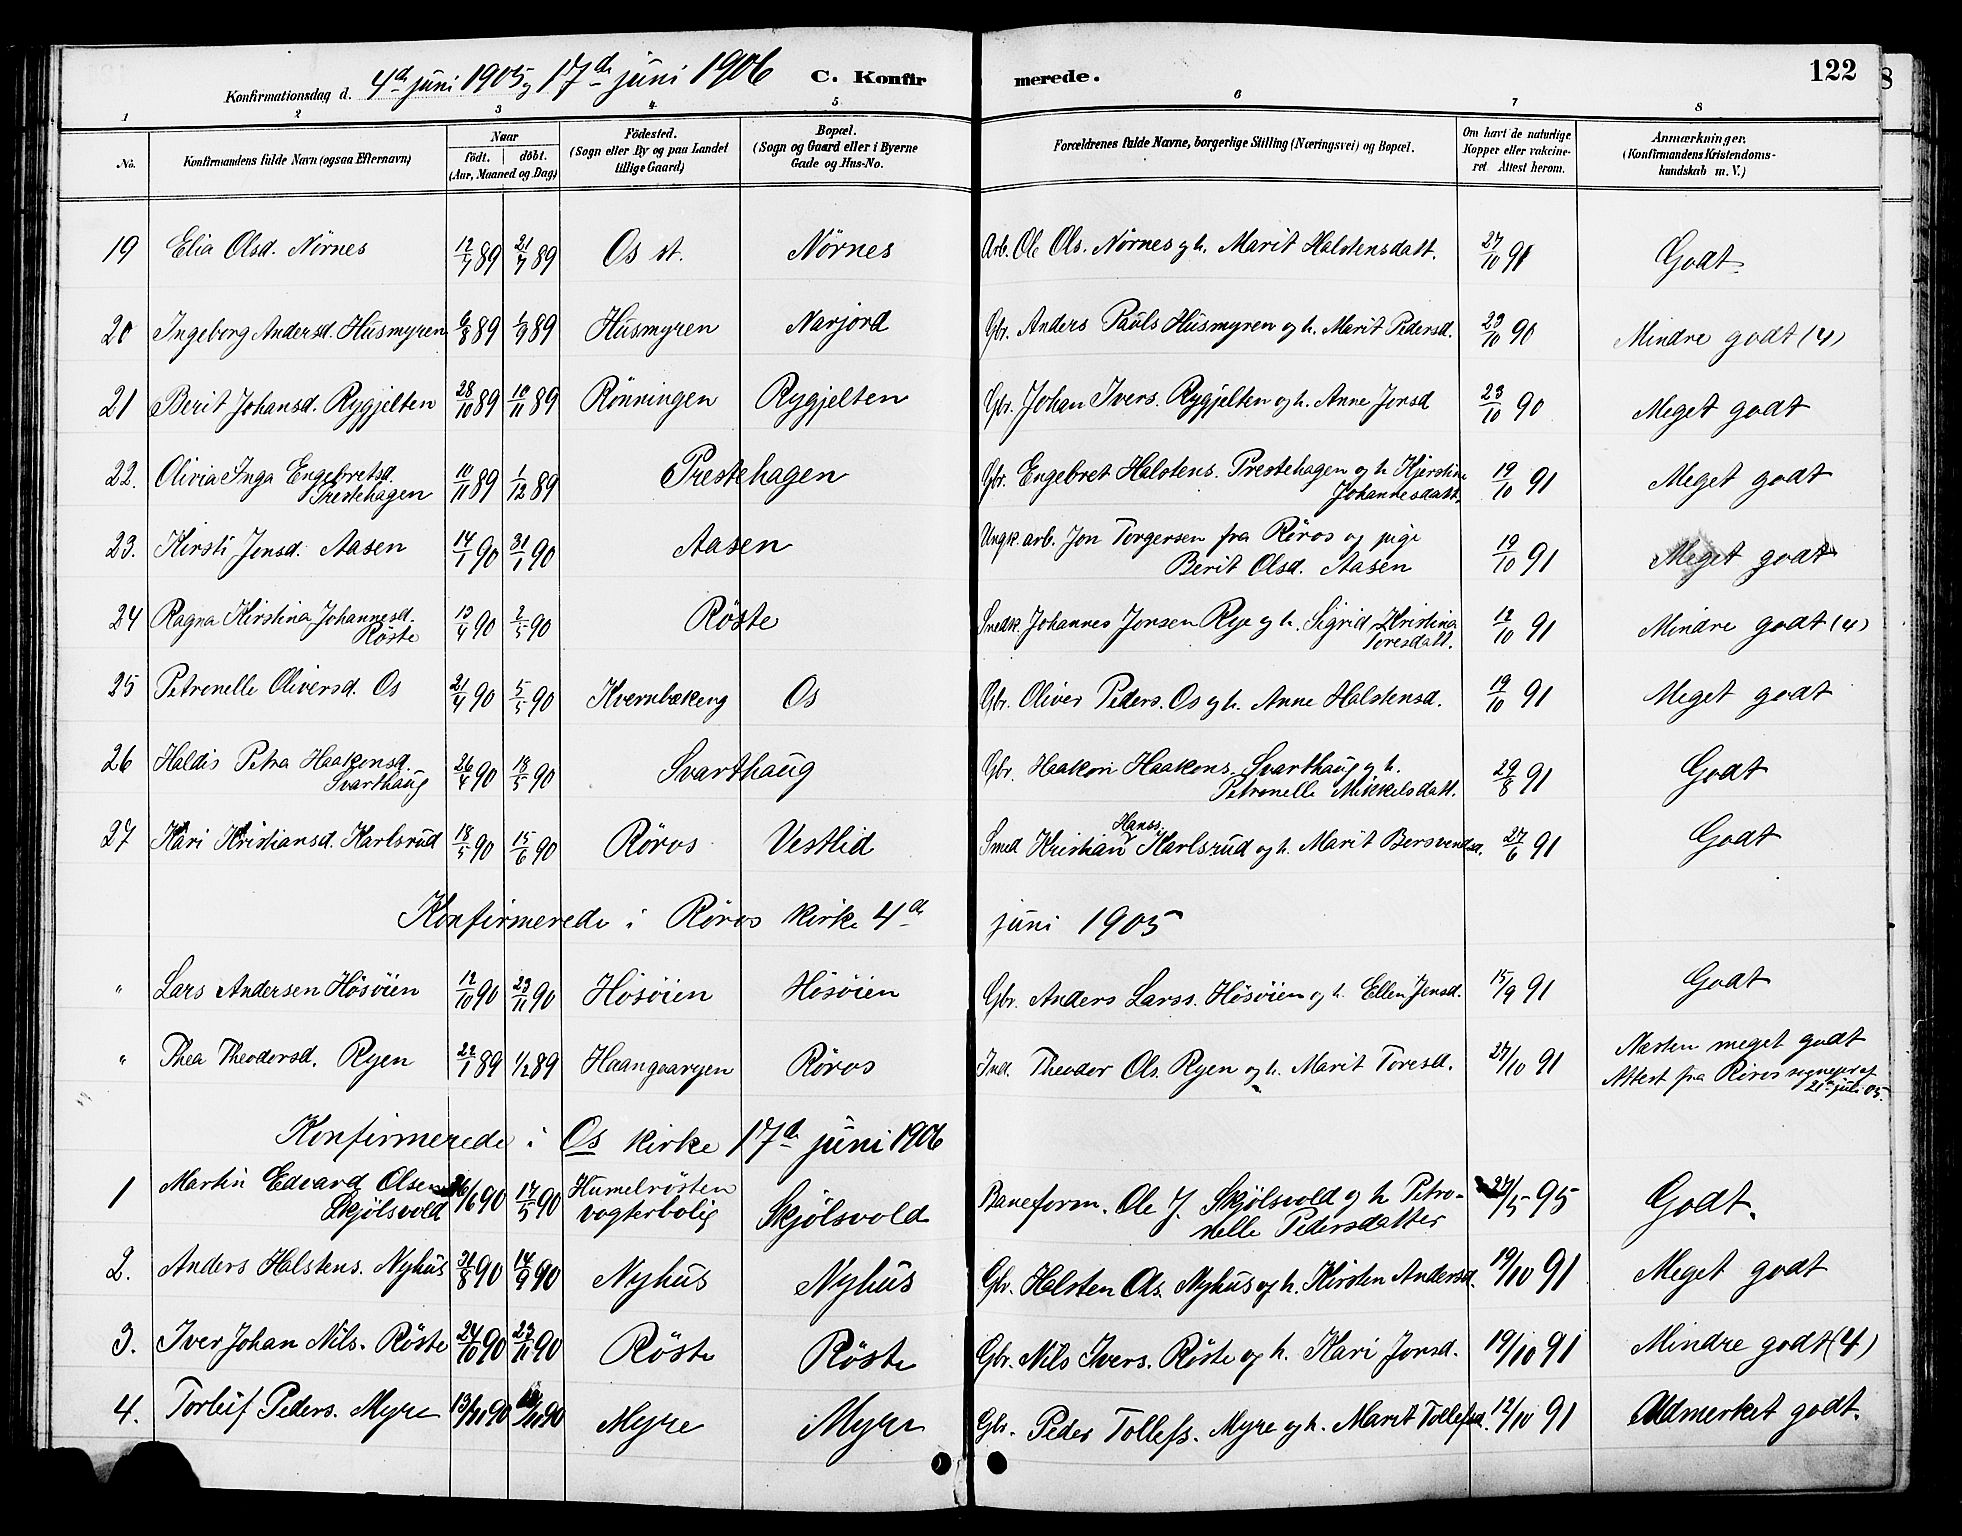 122
Konfirmationsdag d. 4de juni 1905 og 17de juni 1906 C. Konfirmerede.
1 2 3 4 5 6 7 8
No. Konfirmandens fulde Navn (ogsaa Efternavn) Naar født. døbt. (Aar, Maaned og Dag) Fødested. (Sogn eller By og paa Landet tillige Gaard) Bopæl. (Sogn og Gaard eller i Byerne Gade og Hus-No. Forældrenes fulde Navne, borgerlige Stilling (Næringsvei) og Bopæl. Om havt de naturlige Kopper eller vakcineret Attest herom. Anmærkninger. (Konfirmandens Kristendomskundskab m. V.)
19 Elia Olsd. Nörnes 12/7 89 21/7 89 Os st. Nörnes Arb. Ole Ols. Nörnes og h. Marit Halstensdatt. 27/10 91 Godt.
20 Ingeborg Andersd. Husmyren 6/8 89 1/9 89 Husmyren Narjord Gbr. Anders Pauls Husmyren og h. Marit Pedersd. 23/10 90 Mindre godt (4)
21 Berit Johansd. Rygjelten 28/10 89 10/11 89 Rönningen Rygjelten Gbr. Johan Ivers. Rygjelten og h. Anne Jonsd 23/10 90 Meget godt
22. Olivia Inga Engebretsd. Prestehagen 10/11 89 1/12 89 Prestehagen Gbr. Engebret Halstens. Prestehagen og h Kjerstine Johannesdatt. 19/10 91 Meget godt
23. Kirsti Jonsd. Aasen 14/1 90 31/1 90 Aasen Ungk. arb. Jon Torgersen fra Röros og pige Berit Olsd. Aasen 19/10 91 Meget godt
24 Ragna Kirstina Johannesd. Röste 12/4 90 2/5 90 Röste Smedk. Johannes Jonsen Rye og h. Sigrid Kristina Toresdatt. 12/10 91 Mindre godt (4)
25 Petronelle Oliversd. Os 21/4 90 5/5 90 Kvernbækeng Os Gbr. Oliver Peders. Os og h. Anne Halstensd. 19/10 91 Meget godt
26 Haldis Petra Haakonsd. Svarthaug 26/4 90 18/5 90 Svarthaug Gbr. Haakon Haakons. Svarthaug og h. Petronelle Mikkelsdatt. 29/8 91 Godt
27 Kari Kristiansd. Karlsrud 18/5 90 15/6 90 Röros Vestlid Smed Kristian Hanss. Karlsrud og h. Marit Bersvendsd. 27/6 91 Godt
Konfirmerede i Röros kirke 4de juni 1905
" Lars Andersen Hösöien 12/10 90 23/11 90 Hösöien Hösöien Gbr. Anders Larss. Hösöien og h. Ellen Jensd. 15/9 91 Godt
" Thea Theodorsd. Ryen 22/1 89 1/2 89 Haangaaryen Röros Ind. Theodor Ols. Ryen og h. Marit Toresd. 27/10 91 Næsten meget godt Attest fra Röros sognepr af 21de juli 05.
Konfirmerede i Os kirke 17de juni 1906
1 Martin Edvard Olsen Skjölsvold 90 17/5 90 Humelrösten vogterbolig Skjölsvold Baneform. Ole J. Skjölsvold og h Petronelle Pedersdatter 27/5 95 Godt.
2. Anders Halstens. Nyhus 31/8 90 14/9 90 Nyhus Nyhus Gbr. Halsten Ols. Nyhus og h. Kirsten Andersd. 19/10 91 Meget godt
3. Iver Johan Nils. Röste 24/10 90 23/11 90 Röste Röste Gbr. Nils Ivers. Röste og h. Kari Jonsd. 19/10 91 Mindre godt (4)
4. Torleif Peders. Myre 90 90 Myre Myre Gbr. Peder Tollefs. Myre og h. Marit Tollefsd. 12/10 91 Udmerket godt.